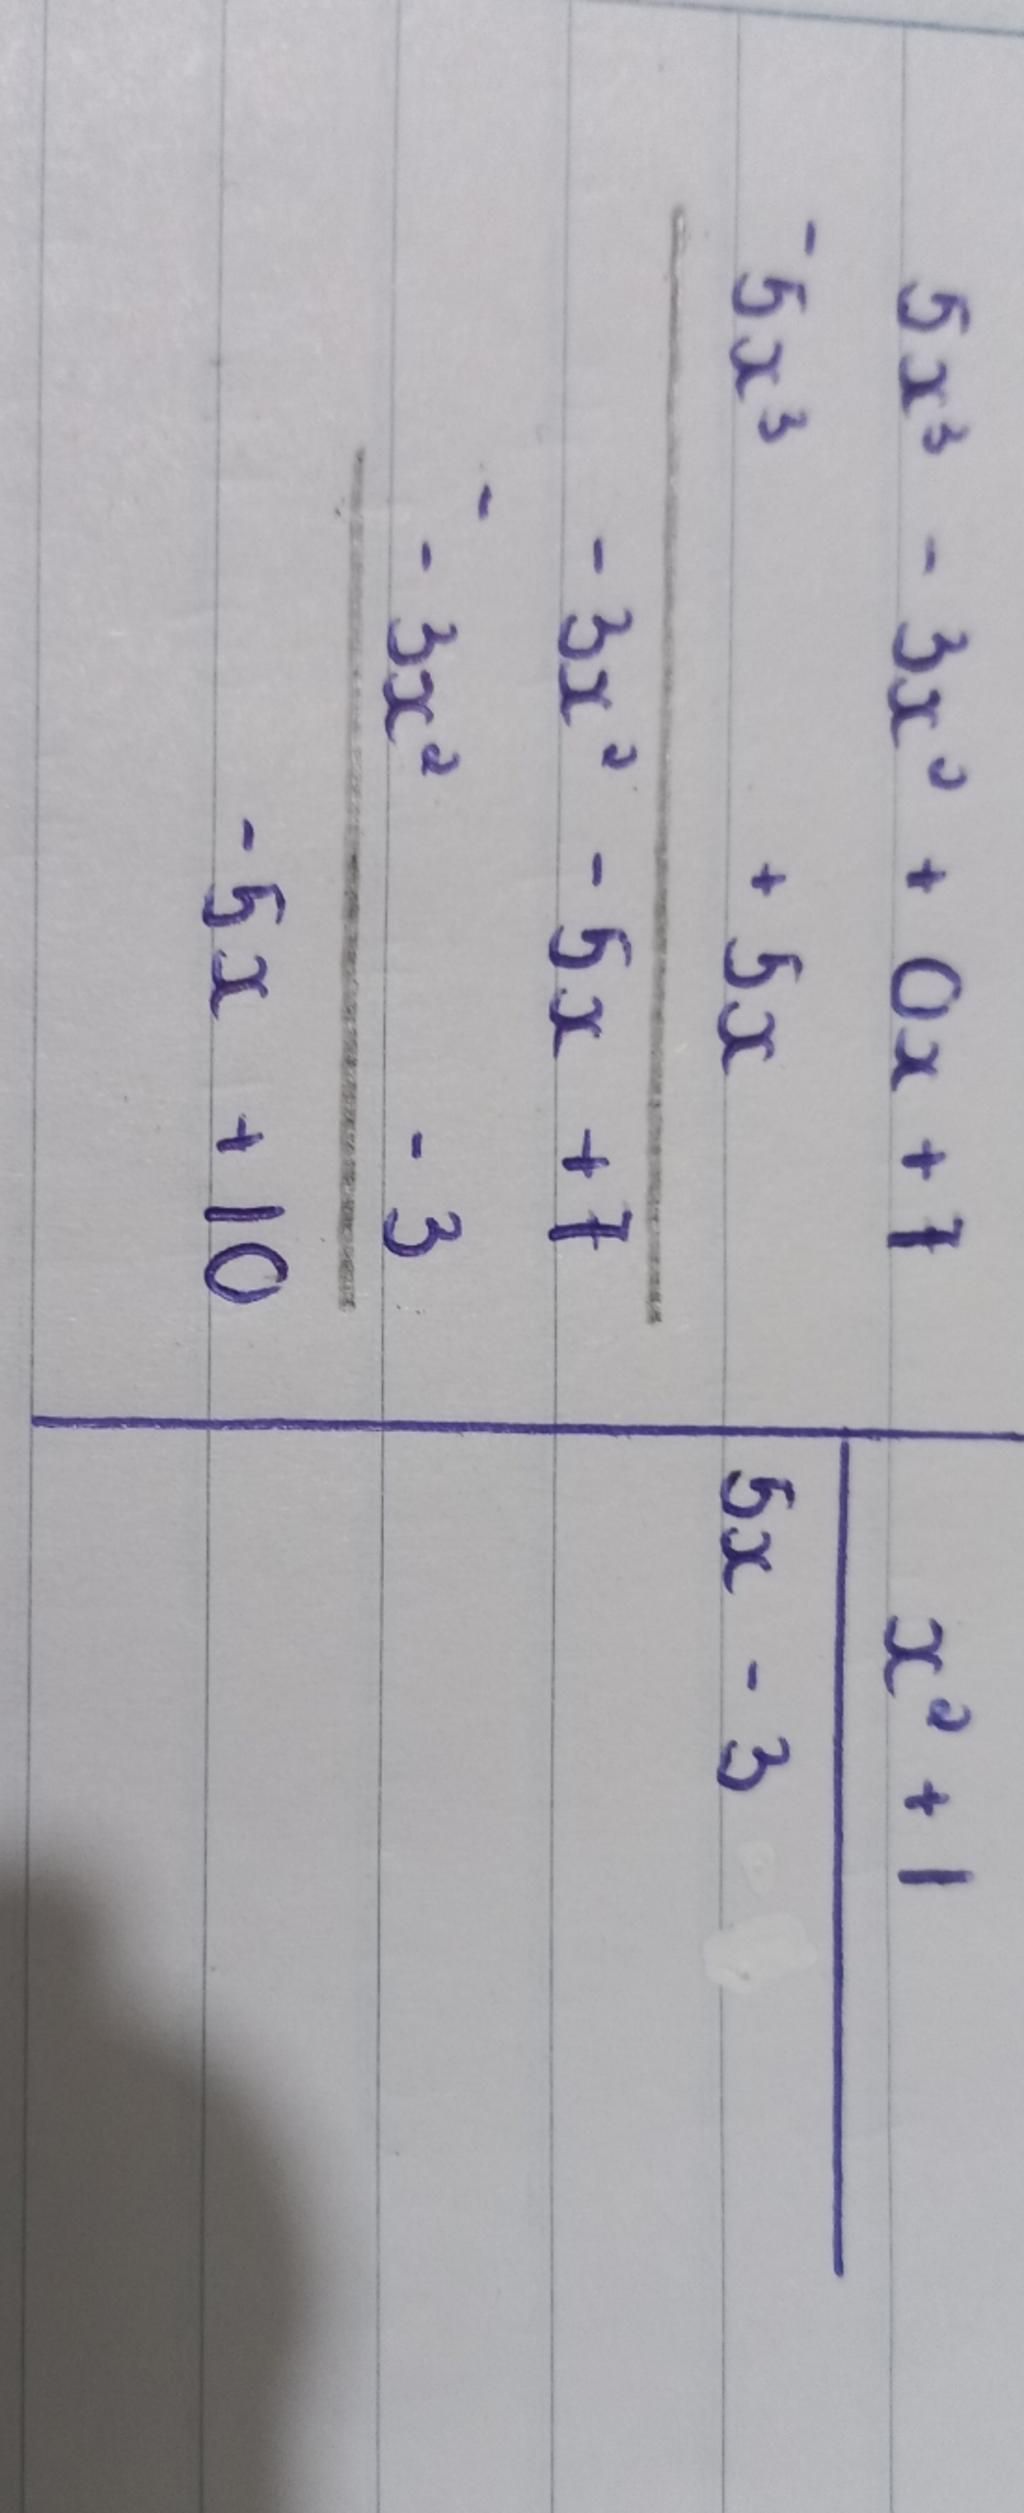 5x³ - 3x² + 0x + 7 x² + 1
- 5x³ + 5x 5x - 3
- 3x² - 5x + 7
- - 3x² - 3
- 5x + 10